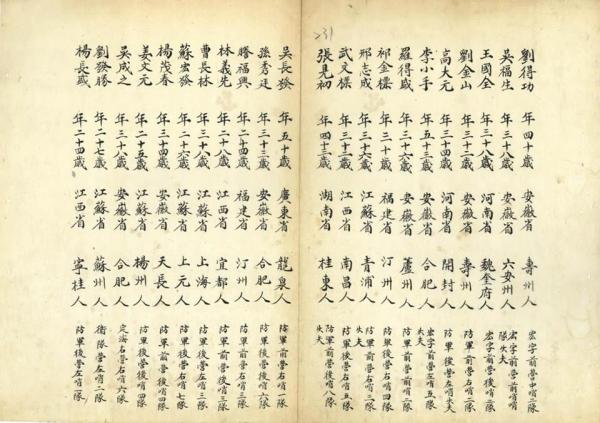 劉得功 年四十歲 安徽省 壽州人 宏字前營中哨二隊
吳福生 年三十八歲 安徽省 六安州人 宏字前營前哨隊火夫
王國全 年三十八歲 河南省 魏奎府人 宏字前營後哨二隊
劉金山 年三十二歲 安徽省 壽州人 防軍前營右哨二隊
高大元 年三十四歲 河南省 開封人 防軍後營左哨火夫
李小手 年五十三歲 安徽省 合肥人 宏字前營左哨五隊火夫
羅得盛 年三十六歲 安徽省 蘆州人 防軍前營前哨二隊
祁金標 年三十八歲 福建省 汀州人 防軍後營右哨四隊
邢志成 年三十六歲 江蘇省 青浦人 防軍前營右哨三隊火夫
武文標 年三十二歲 江西省 南昌人 防軍後營左哨五隊
張見初 年四十三歲 湖南省 桂東人 防軍前營後哨八隊火夫
吳長發 年五十歲 廣東省 龍泉人 防軍前營右哨一隊
孫秀廷 年三十三歲 安徽省 合肥人 防軍後營後哨六隊
滕福興 年二十四歲 福建省 汀州人 防軍後營右哨三隊
林義先 年二十八歲 江西省 宜都人 防軍前營後哨三隊
曹長林 年三十八歲 江蘇省 上海人 防軍前營左哨三隊
蘇宏發 年二十六歲 江蘇省 上元人 防軍後營右哨七隊
楊茂春 年三十二歲 安徽省 天長人 防軍前營後哨四隊
姜文元 年二十五歲 江蘇省 楊州人 防軍後營後哨四隊
吳成之 年三十八歲 安徽省 合肥人 定海右營右哨六隊
劉發勝 年二十七歲 江蘇省 蘇州人 衛隊營左哨二隊
楊長盛 年二十四歲 江西省 寧桂人 防軍後營左哨一隊